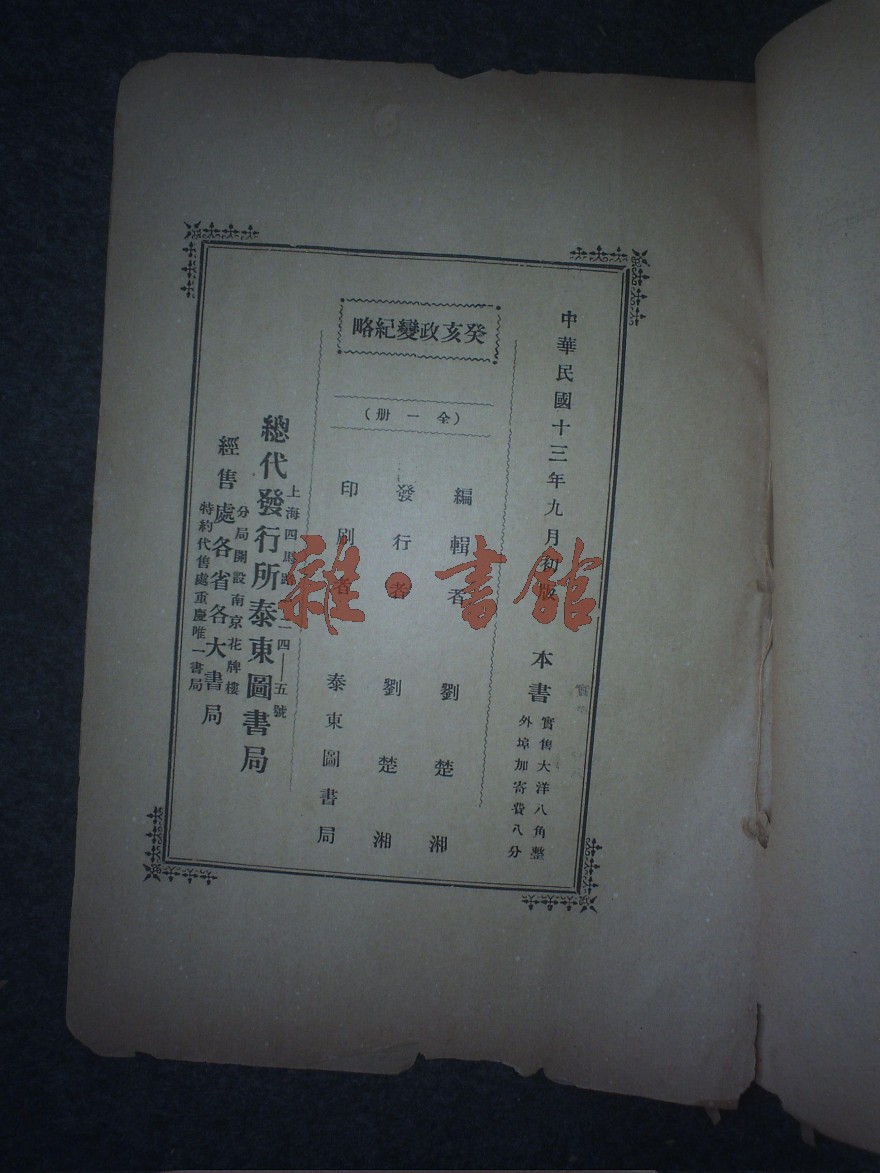 中華民國十三年九月初版
本書
實售大洋八角整
外埠加寄費八分
癸亥政變紀略
（全一册）
編輯者　劉楚湘
發行者　劉楚湘
印刷者　泰東圖書局
上海四馬路一二四——五號
總代發行所泰東圖書局
分局開設南京花牌樓
經售處各省各大書局
特約代售處重慶唯一書局
雜·書館